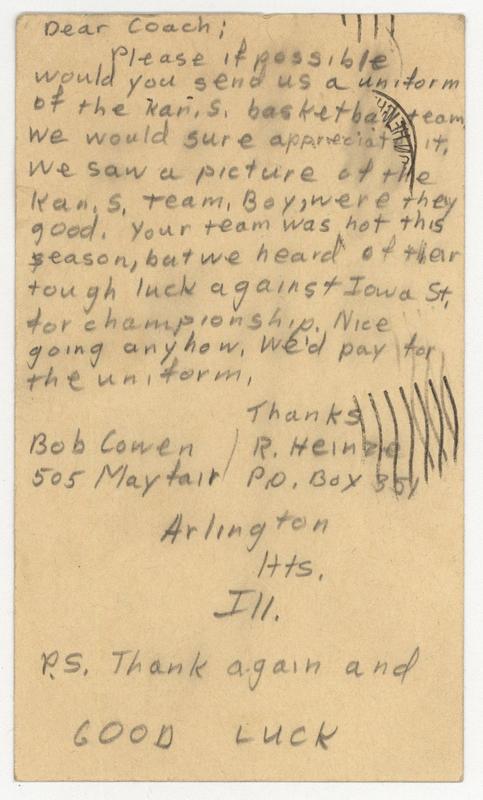 Dear Coach;
Please if possible
would you send us a uniform
of the Kan. S. basketball team.
We would sure appreciate it.
We saw a picture of the
Kan. S. team. Boy, were they
good. Your team was hot this
season, but we heard of their
tough luck against Iowa St.
for championship. Nice
going anyhow. We'd pay for
the uniform.
Thanks
Bob Cowen / R. Heinze
505 Mayfair / P.O. Box 351
Arlington
Hts.
Ill.
P.S. Thank again and
GOOD LUCK